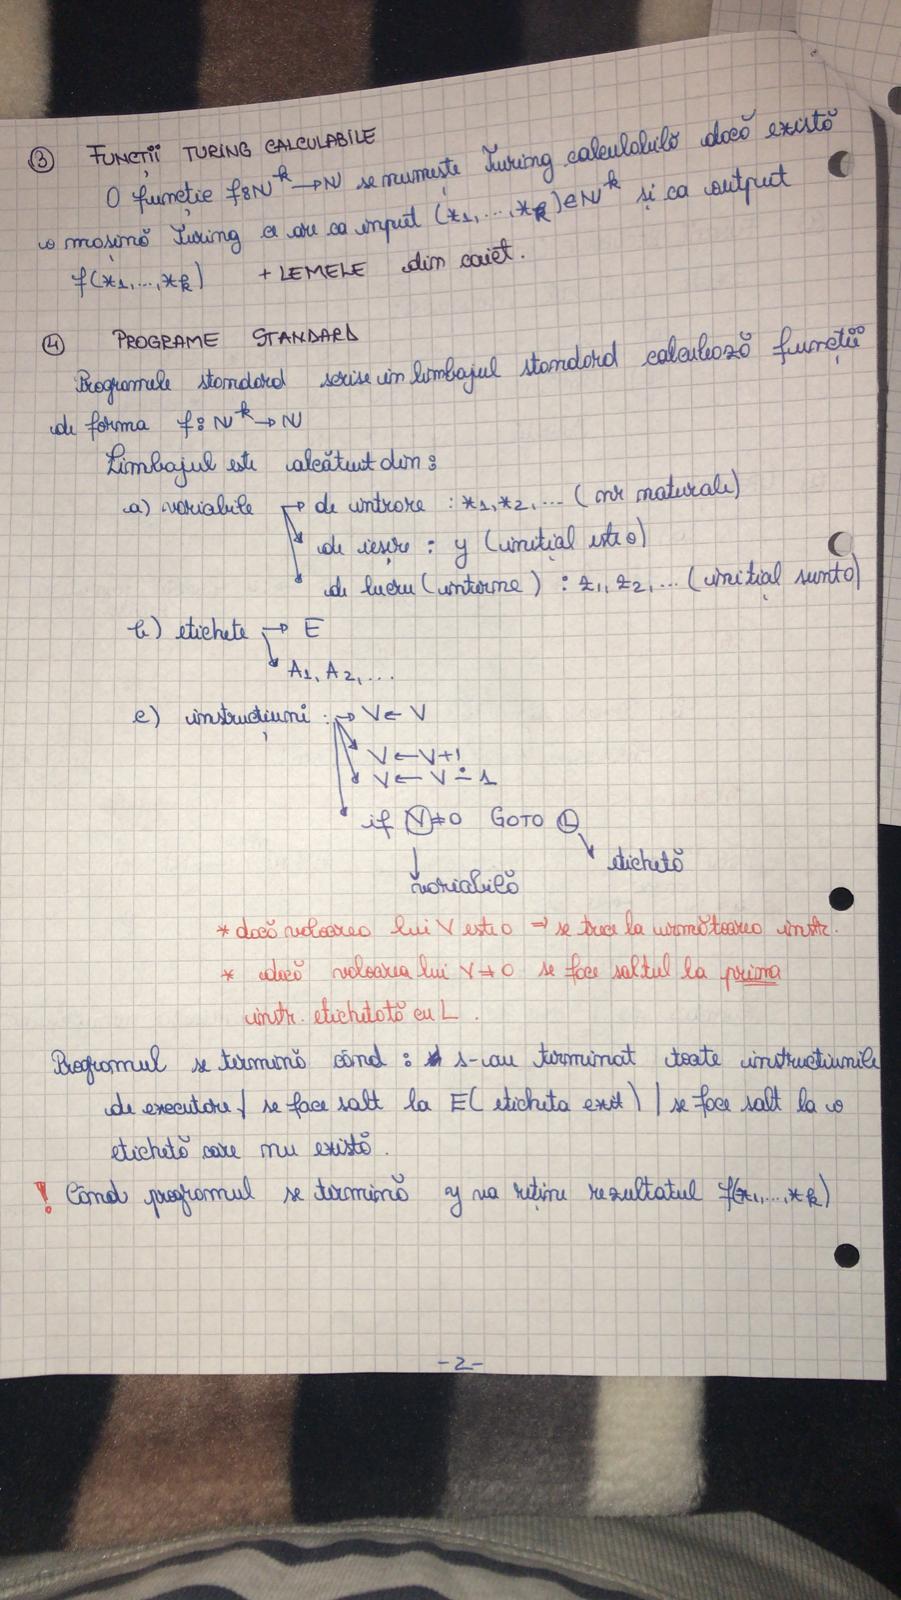 ③ FUNCȚII TURING CALCULABILE
O funcție f: N^k → N se numește Turing calculabilă dacă există
o mașină Turing a are ca input (x1, ..., xk) ∈ N^k și ca output
f(x1, ..., xk) + LEMELE din caiet.
④ PROGRAME STANDARD
Programele standard scrise în limbajul standard calculează funcții
de forma f: N^k → N
Limbajul este alcătuit din:
a) variabile → de intrare : x1, x2, ... (nr naturale)
de ieșire : y (inițial este 0)
de lucru (interne) : z1, z2, ... (inițial sunt 0)
b) etichete → E
A1, A2, ...
c) instrucțiuni : → V ← V
V ← V+1
V ← V ∸ 1
if V ≠ 0 GOTO L
etichetă
variabilă
* dacă valoarea lui V este 0 ⇒ se trece la următoarea instr.
* dacă valoarea lui V ≠ 0 se face saltul la prima
instr. etichetată cu L.
Programul se termină când : s-au terminat toate instrucțiunile
de executare / se face salt la E (eticheta exit) / se face salt la o
etichetă care nu există.
! Când programul se termină y va reține rezultatul f(x1, ..., xk)
-2-